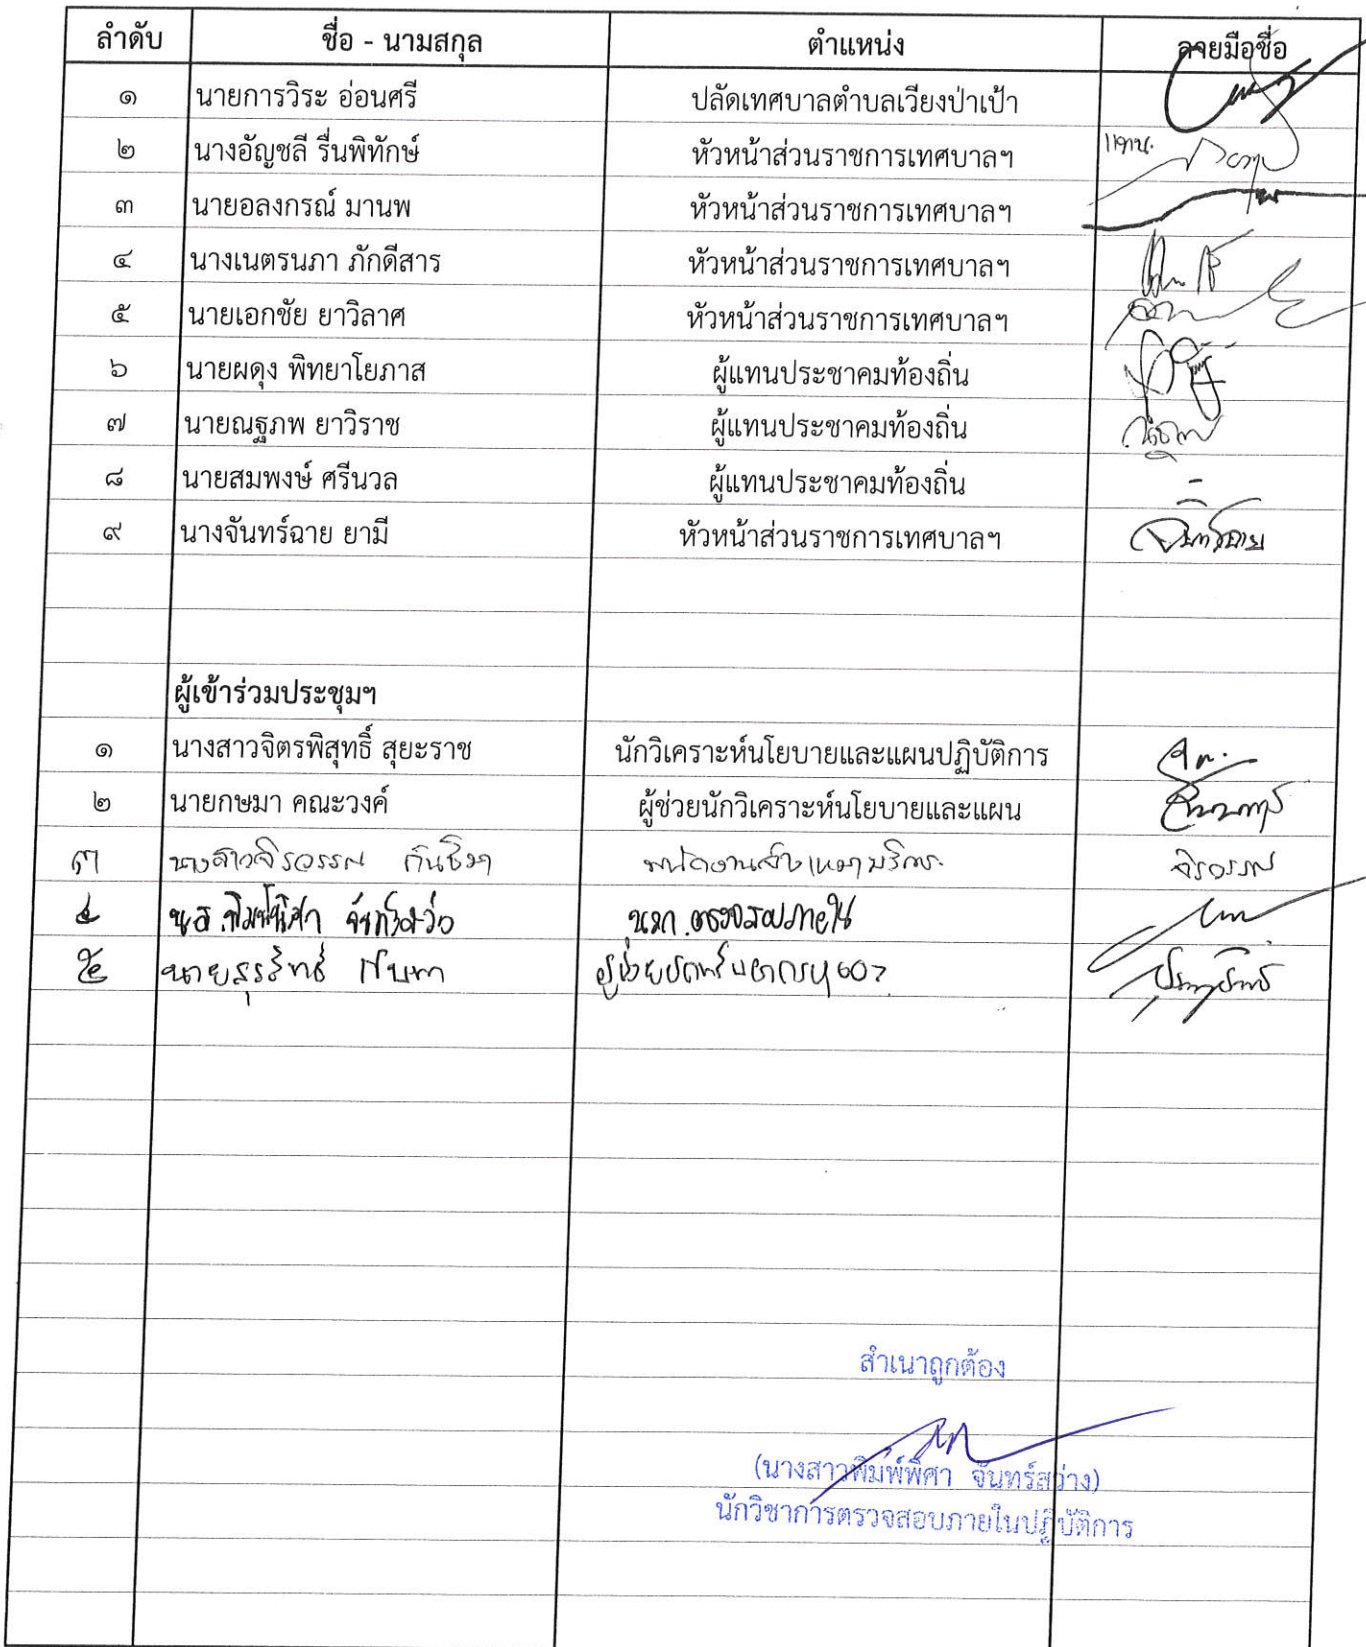 ลำดับ ชื่อ - นามสกุล ตำแหน่ง ลายมือชื่อ
๑ นายการวิระ อ่อนศรี ปลัดเทศบาลตำบลเวียงป่าเป้า
๒ นางอัญชลี รื่นพิทักษ์ หัวหน้าส่วนราชการเทศบาลฯ
๓ นายอลงกรณ์ มานพ หัวหน้าส่วนราชการเทศบาลฯ
๔ นางเนตรนภา ภักดีสาร หัวหน้าส่วนราชการเทศบาลฯ
๕ นายเอกชัย ยาวิลาศ หัวหน้าส่วนราชการเทศบาลฯ
๖ นายผดุง พิทยาโยภาส ผู้แทนประชาคมท้องถิ่น
๗ นายณฐภพ ยาวิราช ผู้แทนประชาคมท้องถิ่น
๘ นายสมพงษ์ ศรีนวล ผู้แทนประชาคมท้องถิ่น -
๙ นางจันทร์ฉาย ยามี หัวหน้าส่วนราชการเทศบาลฯ จันทร์ฉาย
ผู้เข้าร่วมประชุมฯ
๑ นางสาวจิตรพิสุทธิ์ สุยะราช นักวิเคราะห์นโยบายและแผนปฏิบัติการ
๒ นายกษมา คณะวงค์ ผู้ช่วยนักวิเคราะห์นโยบายและแผน
๓ นางสาวจิรวรรณ พนักงานจ้างเหมาบริการ จิรวรรณ
๔ น.ส.พิมพ์พิศา จันทร์สว่าง นวก.ตรวจสอบภายใน
๕ นายสุรสิทธิ์
สำเนาถูกต้อง
(นางสาวพิมพ์พิศา จันทร์สว่าง)
นักวิชาการตรวจสอบภายในปฏิบัติการ